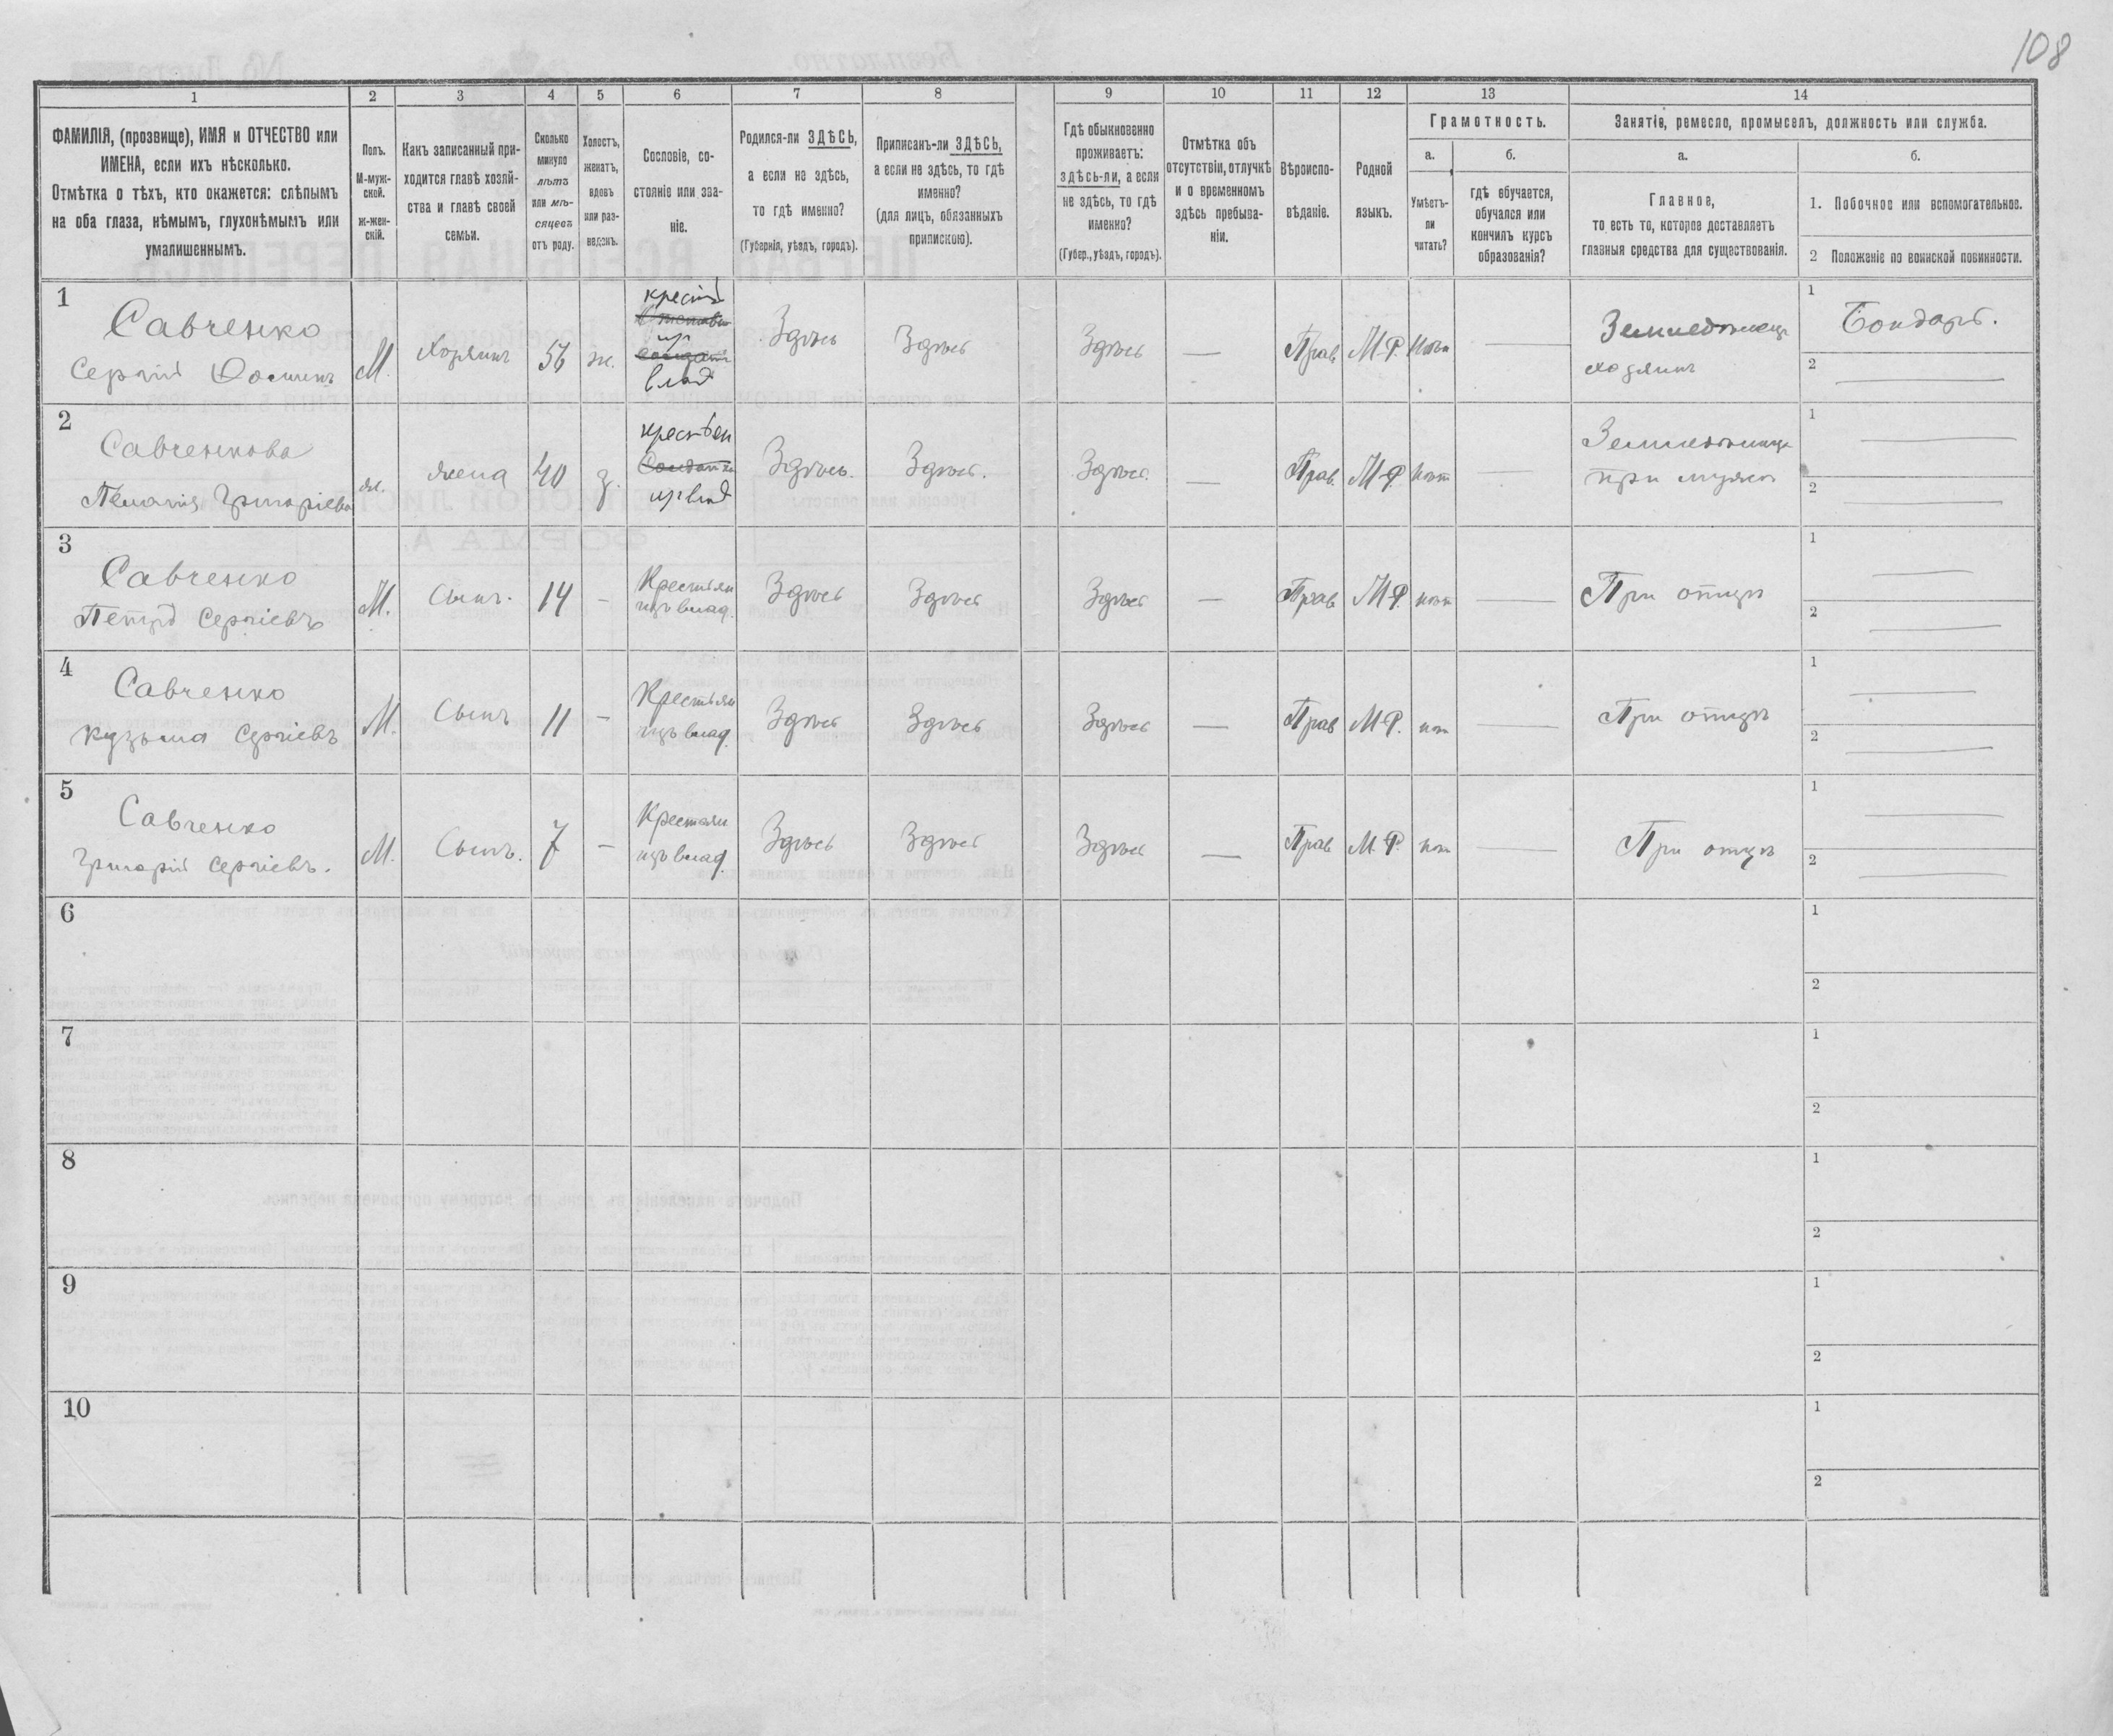 108
1 2 3 4 5 6 7 8 9 10 11 12 13 14
ФАМИЛІЯ, (прозвище), ИМЯ и ОТЧЕСТВО или
ИМЕНА, если ихъ нѣсколько.
Отмѣтка о тѣхъ, кто окажется: слѣпымъ
на оба глаза, нѣмымъ, глухонѣмымъ или
умалишеннымъ.
Полъ.
М-муж-
ской.
ж-жен-
скій.
Какъ записанный при-
ходится главѣ хозяй-
ства и главѣ своей
семьи.
Сколько
минуло
лѣтъ
или мѣ-
сяцевъ
отъ роду.
Холостъ,
женатъ,
вдовъ
или раз-
веденъ.
Сословіе, со-
стояніе или зва-
ніе.
Родился-ли ЗДѢСЬ,
а если не здѣсь,
то гдѣ именно?
(Губернія, уѣздъ, городъ).
Приписанъ-ли ЗДѢСЬ,
а если не здѣсь, то гдѣ
именно?
(для лицъ, обязанныхъ
припискою).
Гдѣ обыкновенно
проживаетъ:
здѣсь-ли, а если
не здѣсь, то гдѣ
именно?
(Губер., уѣздъ, городъ).
Отмѣтка объ
отсутствіи, отлучкѣ
и о временномъ
здѣсь пребыва-
ніи.
Вѣроиспо-
вѣданіе.
Родной
языкъ.
Грамотность.
а.
Умѣетъ-
ли
читать?
б.
гдѣ обучается,
обучался или
кончилъ курсъ
образованія?
Занятіе, ремесло, промыселъ, должность или служба.
а.
Главное,
то есть то, которое доставляетъ
главныя средства для существованія.
б.
1. Побочное или вспомогательное.
2 Положеніе по воинской повинности.
1
Савченко
Сергій
М.
Хозяинъ
56
ж.
крест
из
влад
Здѣсь
Здѣсь
Здѣсь
—
Прав
М.Р.
нѣт
—
Земледѣлецъ
хозяинъ
1 Бондарь.
2 —
2
Савченкова
Пелагія Григоріева
ж.
жена
40
з.
крестьян
из влад
Здѣсь.
Здѣсь.
Здѣсь.
—
Прав.
М.Р.
нѣт
—
при мужѣ
1 —
2 —
3
Савченко
Петръ Сергіевъ
М.
Сынъ.
14
—
Крестьян
изъ влад.
Здѣсь
Здѣсь
Здѣсь
—
Прав
М.Р.
нѣт
—
При отцѣ
1 —
2 —
4
Савченко
Кузьма Сергіевъ
М.
Сынъ
11
—
Крестьян
изъ влад.
Здѣсь
Здѣсь
Здѣсь
—
Прав
М.Р.
нѣт
—
При отцѣ
1 —
2 —
5
Савченко
Григорій Сергіевъ.
М.
Сынъ.
7
—
Крестьян
изъ влад.
Здѣсь
Здѣсь
Здѣсь
—
Прав
М.Р.
нѣт
—
При отцѣ
1 —
2 —
6
1
2
7
1
2
8
1
2
9
1
2
10
1
2